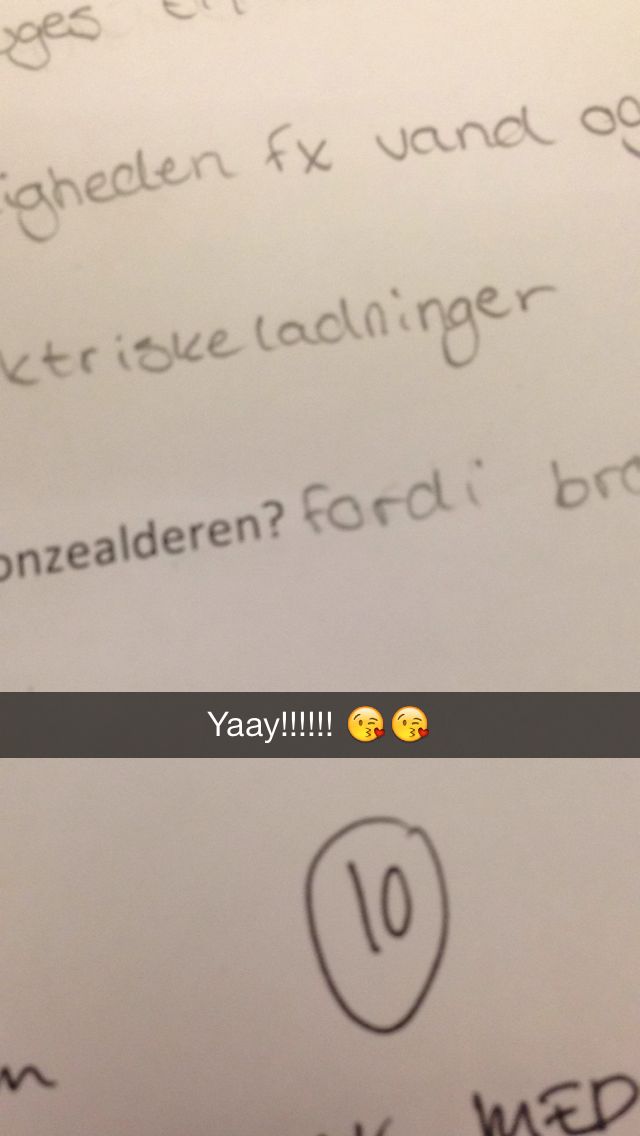 igheden fx vand og
ktriskeladninger
onzealderen? fordi
Yaay!!!!!! 😘😘
10
MED